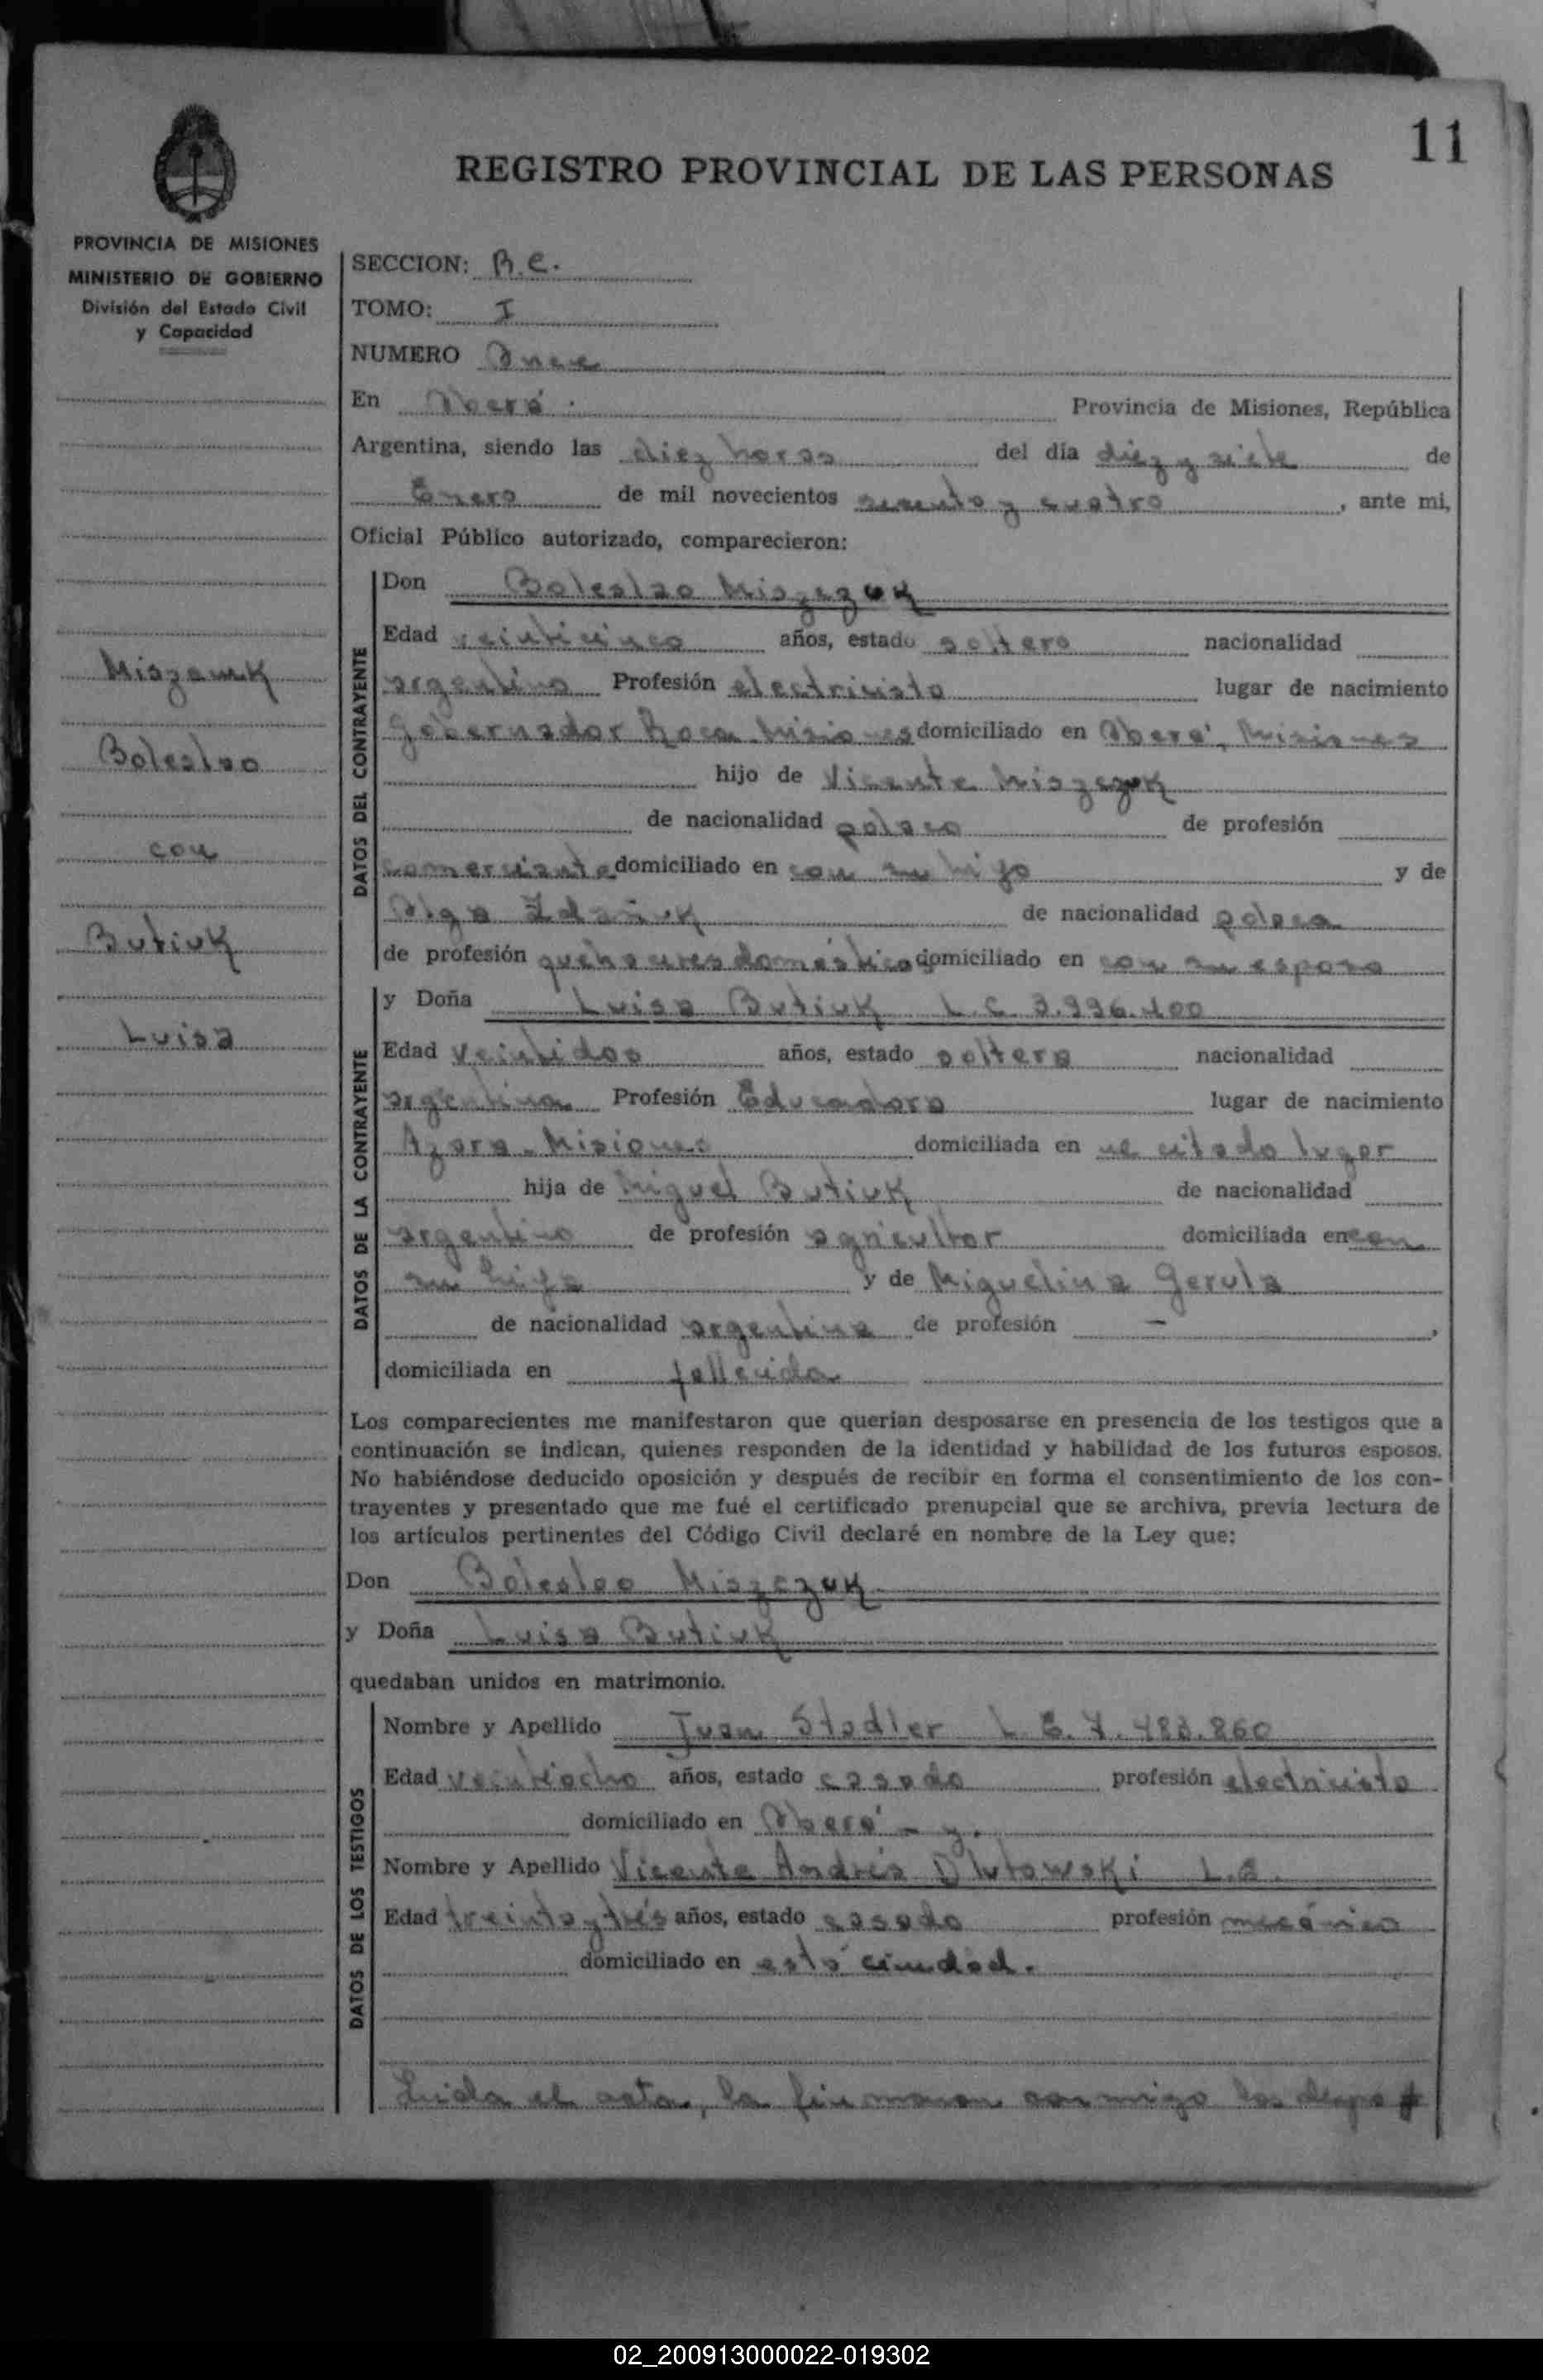 11
REGISTRO PROVINCIAL DE LAS PERSONAS
PROVINCIA DE MISIONES
MINISTERIO DE GOBIERNO
División del Estado Civil
y Capacidad
Miszczuk
Boleslao
con
Butiuk
Luisa
SECCION: R.C.
TOMO: I
NUMERO Once
En Oberá. Provincia de Misiones, República
Argentina, siendo las diez horas del día diez y siete de
Enero de mil novecientos sesenta y cuatro, ante mi,
Oficial Público autorizado, comparecieron:
DATOS DEL CONTRAYENTE
Don Boleslao Miszczuk
Edad veinticinco años, estado soltero nacionalidad
argentino Profesión electricista lugar de nacimiento
Gobernador Roca Misiones domiciliado en Oberá, Misiones
hijo de Vicente Miszczuk
de nacionalidad polaco de profesión
comerciante domiciliado en con su hijo y de
Olga de nacionalidad polaca
de profesión quehaceres domésticos domiciliado en con su esposo
DATOS DE LA CONTRAYENTE
y Doña Luisa Butiuk L.C. 3.996.400
Edad veintidos años, estado soltera nacionalidad
argentina Profesión Educadora lugar de nacimiento
Azara - Misiones domiciliada en citado lugar
hija de Miguel Butiuk de nacionalidad
argentino de profesión agricultor domiciliada en con
su hija y de Miguelina Gerula
de nacionalidad argentina de profesión —,
domiciliada en fallecida
Los comparecientes me manifestaron que querían desposarse en presencia de los testigos que a
continuación se indican, quienes responden de la identidad y habilidad de los futuros esposos.
No habiéndose deducido oposición y después de recibir en forma el consentimiento de los con-
trayentes y presentado que me fué el certificado prenupcial que se archiva, previa lectura de
los artículos pertinentes del Código Civil declaré en nombre de la Ley que:
Don Boleslao Miszczuk
y Doña Luisa Butiuk
quedaban unidos en matrimonio.
DATOS DE LOS TESTIGOS
Nombre y Apellido Juan Stadler L.E. 7.483.860
Edad veintiocho años, estado casado profesión electricista
domiciliado en Oberá - y.
Nombre y Apellido Vicente Andrés Dlutowski L.E.
Edad treinta y trés años, estado casado profesión mecánico
domiciliado en está ciudad.
Leida el acta, la firmaron conmigo los
02_200913000022-019302